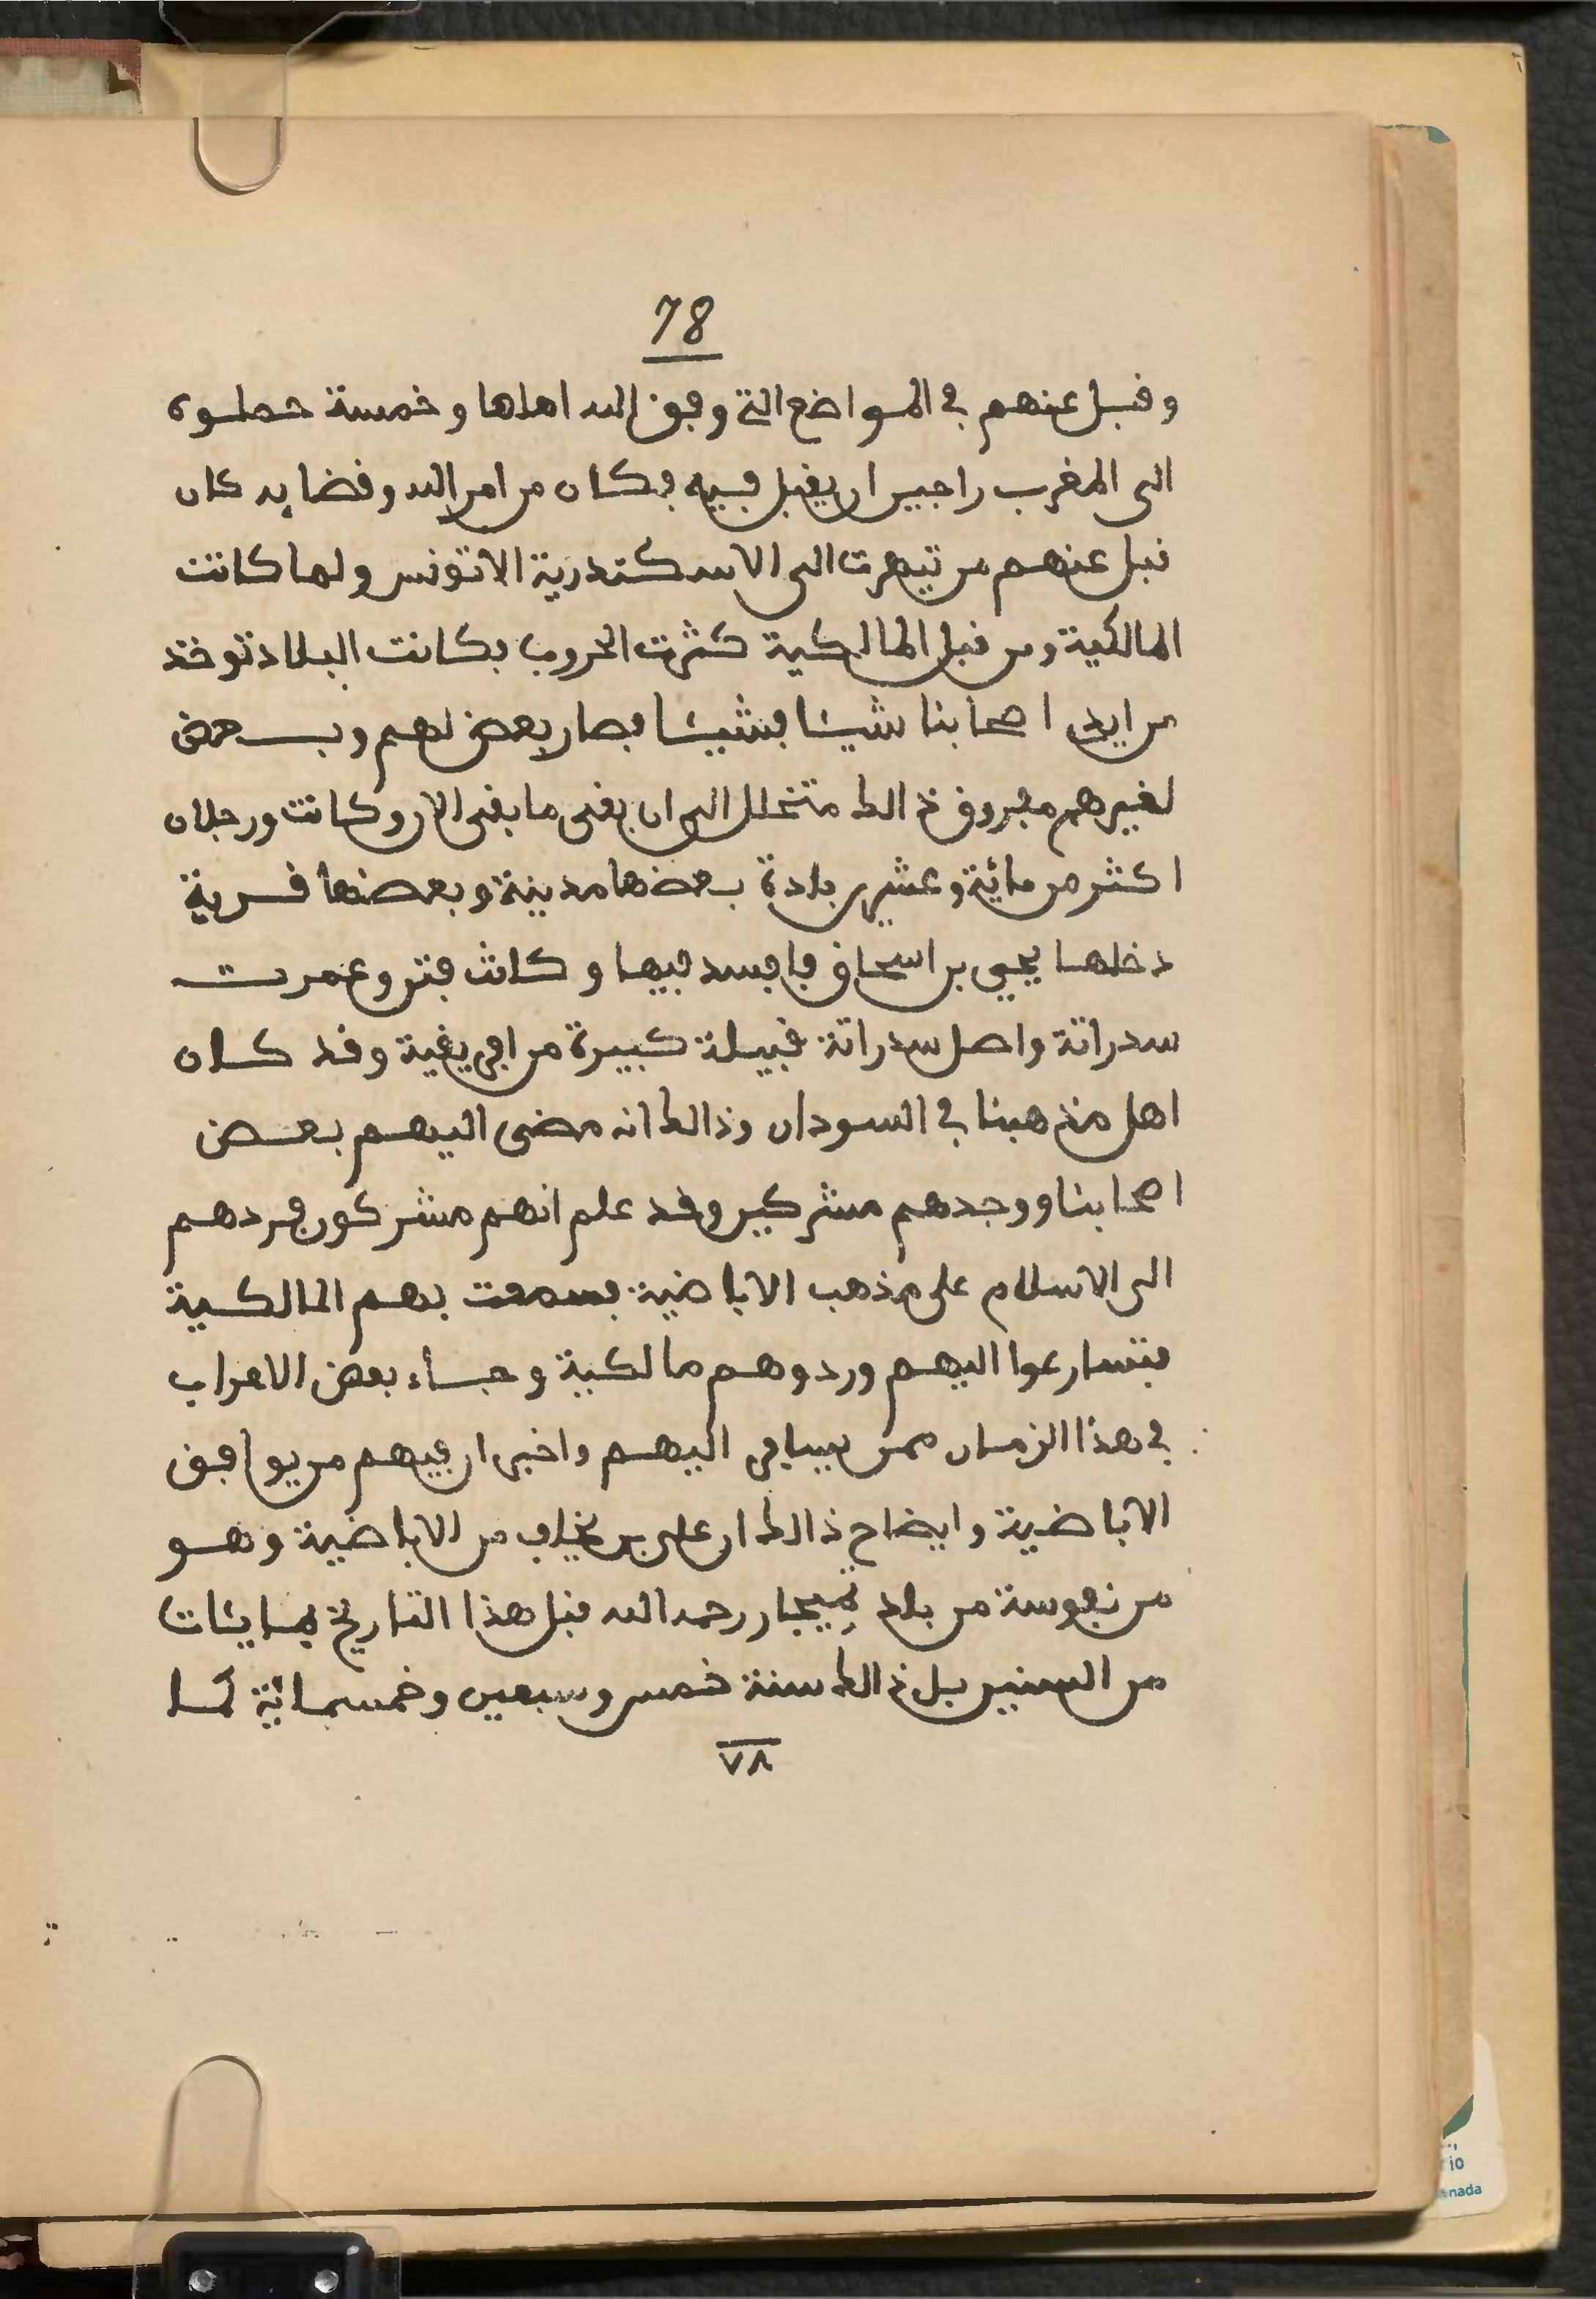 78
وقبل عنهم في المواضع التي وفق الله اهلها وخمسة حملوه
الى المغرب راجين ان يقبل فيه فكان من امر الله وقضايه كان
قبل عنهم من تيهرت الى الاسكندرية الا تونس ولما كانت
المالكية ومن قبل المالكية كثرت الحروب فكانت البلاد توخذ
من ايدي اصحابنا شيئا فشيئا فصار بعض لهم وبعض
لغيرهم مفروق ذالك متخلل الى ان بقى ما بقى الان وكانت ورجلان
اكثر من مائية وعشرين بلدة بعضها مدينة وبعضها قرية
دخلها يحيى بن اسحاق فافسد فيها وكانت فتن وعمرت
سدراتة واصل سدراتة قبيلة كبيرة من افريقية وقد كان
اهل مذهبنا في السودان وذالك انه مضى اليهم بعض
اصحابنا ووجدهم مشركين وقد علم انهم مشركون فردهم
الى الاسلام على مذهب الاباضية فسمعت بهم المالكية
فتسارعوا اليهم وردوهم مالكية وجاء بعض الاعراب
في هذا الزمان ممن يسافر اليهم واخبر ان فيهم من يوافق
الاباضية وايضاح ذالك ان علي بن يخلف من الاباضية وهو
من نفوسة من بلد تميجار رحمه الله قبل هذا التاريخ بمايئات
من السنين بل ذالك سنة خمس وسبعين وخمسمائية لما
٧٨